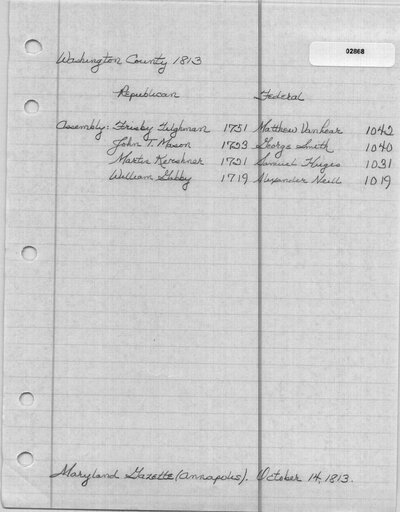 02868
Washington County 1813
Republican Federal
Assembly: Frisby Tilghman 1751 Matthew Vanlear 1042
John T. Mason 1753 George Smith 1040
Martin Kershner 1721 Samuel Huges 1031
William Gabby 1719 Alexander Neill 1019
Maryland Gazette (Annapolis). October 14, 1813.